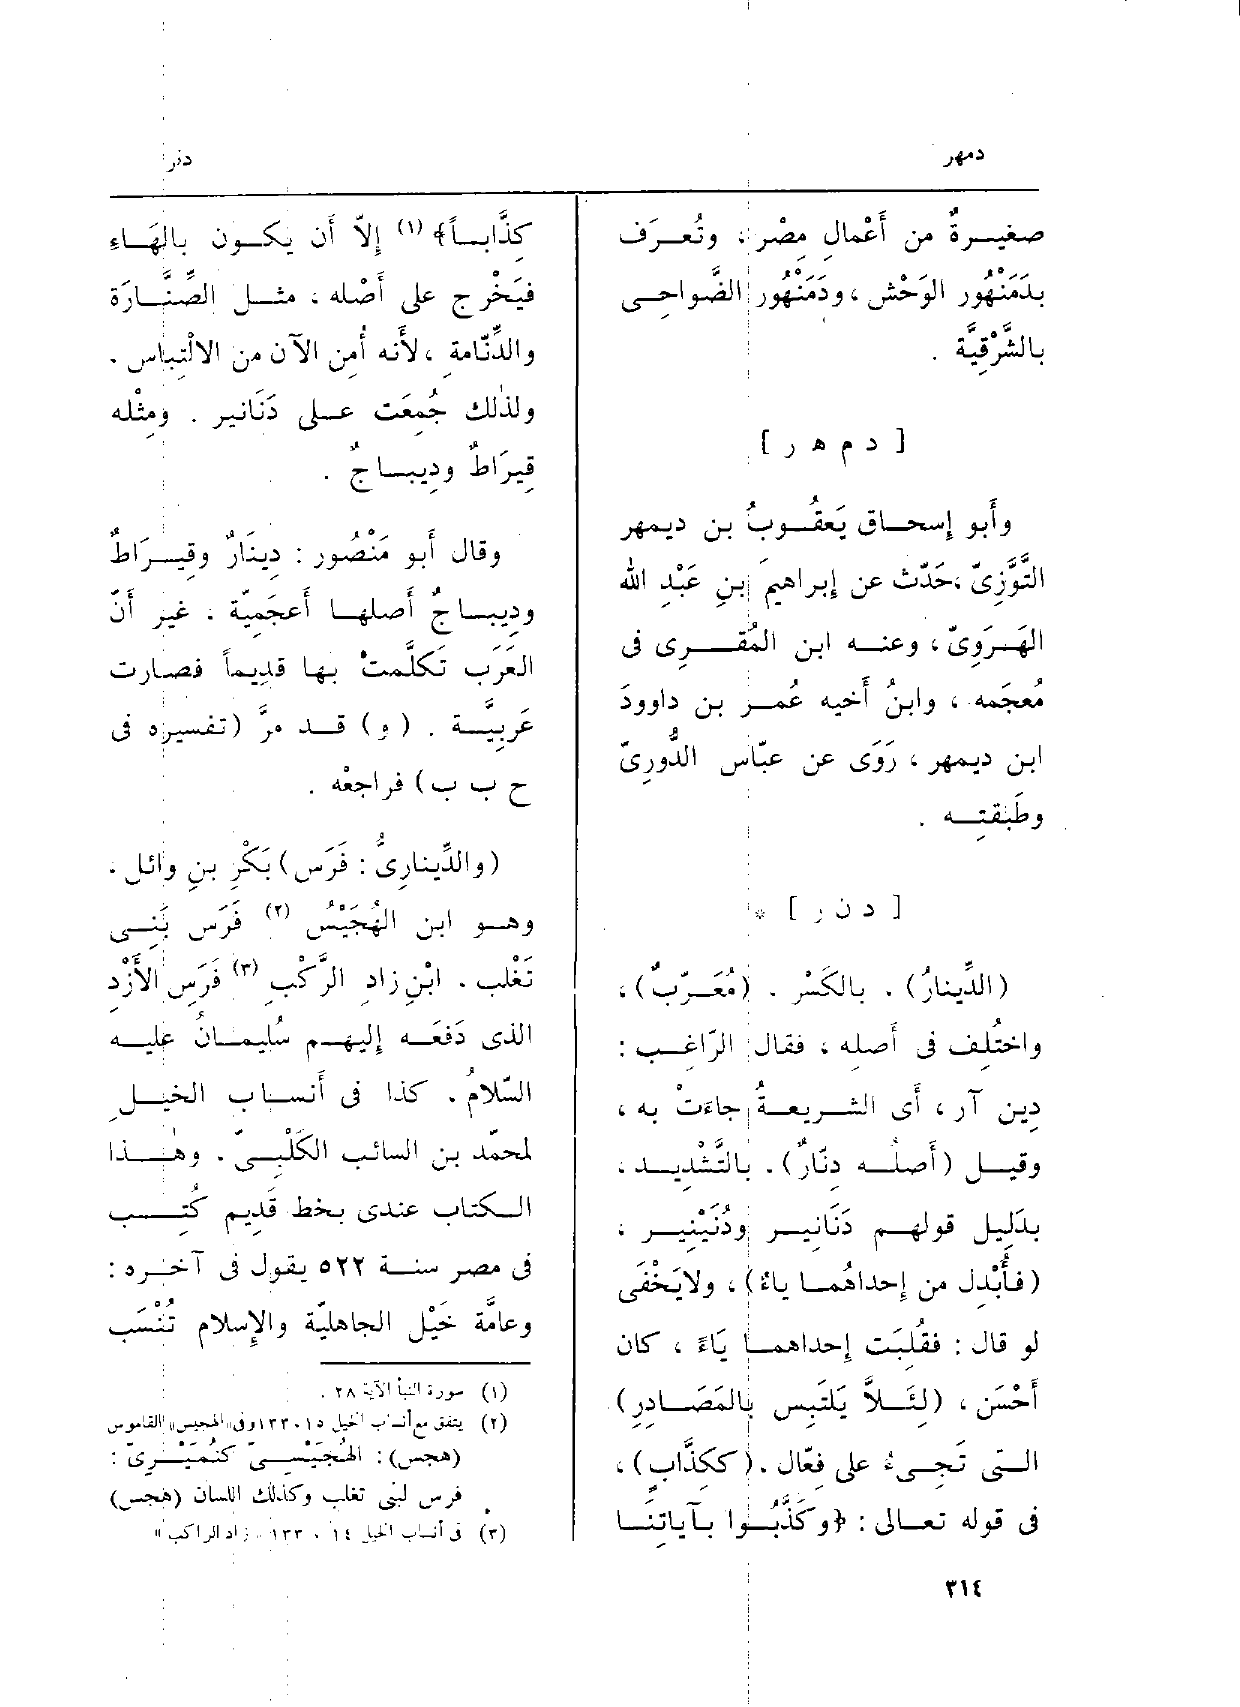 دمهر
دنر
صغيرةٌ من أَعْمالِ مِصْر، وتُعرَف
بدَمَنْهُور الوَحْش، ودَمَنْهُور الضَّواحِى
بالشَّرْقِيَّة .
[ د م هـ ر ]
وأَبو إسحاق يَعقُوبُ بن ديمهر
التَّوَّزِىّ، حَدّث عن إبراهيمَ بنِ عَبْدِ الله
الهَرَوِىّ، وعنه ابن المُقرِى فى
مُعجَمه، وابنُ أَخيه عُمر بن داوودَ
ابن ديمهر، رَوَى عن عبّاس الدُّورِىّ
وطَبقتِه .
[ د ن ر ] *
(الدِّينارُ) . بالكَسْر . (مُعَرّبٌ)،
واختُلِف فى أَصله، فقال الرّاغِب :
دِين آر، أَى الشريعةُ جاءَتْ به،
وقيل (أَصلُه دِنّارٌ) . بالتَّشْدِيد،
بدَلِيل قولهم دَنَانِير ودُنَيْنِير،
(فأُبْدل من إِحداهُما ياءٌ)، ولا يَخْفَى
لو قال : فقُلِبَت إِحداهما يَاءً، كان
أَحْسَن، (لِئَلاَّ يَلتَبِس بالمَصَادِرِ)
التى تَجِىءُ على فِعّال . (ككِذَّابٍ)،
فى قوله تعالى : ﴿وكَذَّبُوا بآياتِنَا
كِذَّاباً﴾ (١) إلاّ أن يكون بالهَاءِ
فيَخْرج على أَصْله، مثل الصِّنَّارَة
والدِّنّامة، لأَنه أُمِن الآن من الالْتِباس .
ولذٰلك جُمِعَت على دَنَانير . ومِثْله
قِيرَاطٌ ودِيباجٌ .
وقال أَبو مَنْصُور : دِينَارٌ وقِيرَاطٌ
ودِيباجٌ أَصلها أَعجَمِيّة . غير أَنّ
العَرَب تَكلَّمتْ بها قديماً فصارت
عَرَبِيَّة . (و) قد مرَّ (تفسيره فى
ح ب ب) فراجعْه .
(والدِّينارِىُّ : فَرَس) بَكْرِ بنِ وائل .
وهو ابن الهُجَيْسُ (٢) فَرَس بَنِى
تَغْلب . ابْنِ زادِ الرَّكْب (٣) فَرَسِ الأَزْدِ
الذى دَفَعَه إِليهم سُليمانُ عليه
السّلامُ . كذا فى أَنساب الخيلِ
لمحمّد بن السائب الكَلْبِىّ . وهٰذا
الكتاب عندى بخط قديم كُتِب
فى مصر سنة ٥٢٢ يقول فى آخره :
وعامَّة خَيْل الجاهليّة والإسلام تُنْسَب
(١) سورة النبأ الآية ٢٨ .
(٢) يتفق مع أنساب الخيل ١٥، ١٣٣ وفى «الهجيس» القاموس
(هجس) : الهُجَيْسِىّ كنُمَيْرِىّ :
فرس لبنى تغلب وكذلك اللسان (هجس)
(٣) فى أنساب الخيل ١٤، ١٣٣ «زاد الراكب»
٣١٤